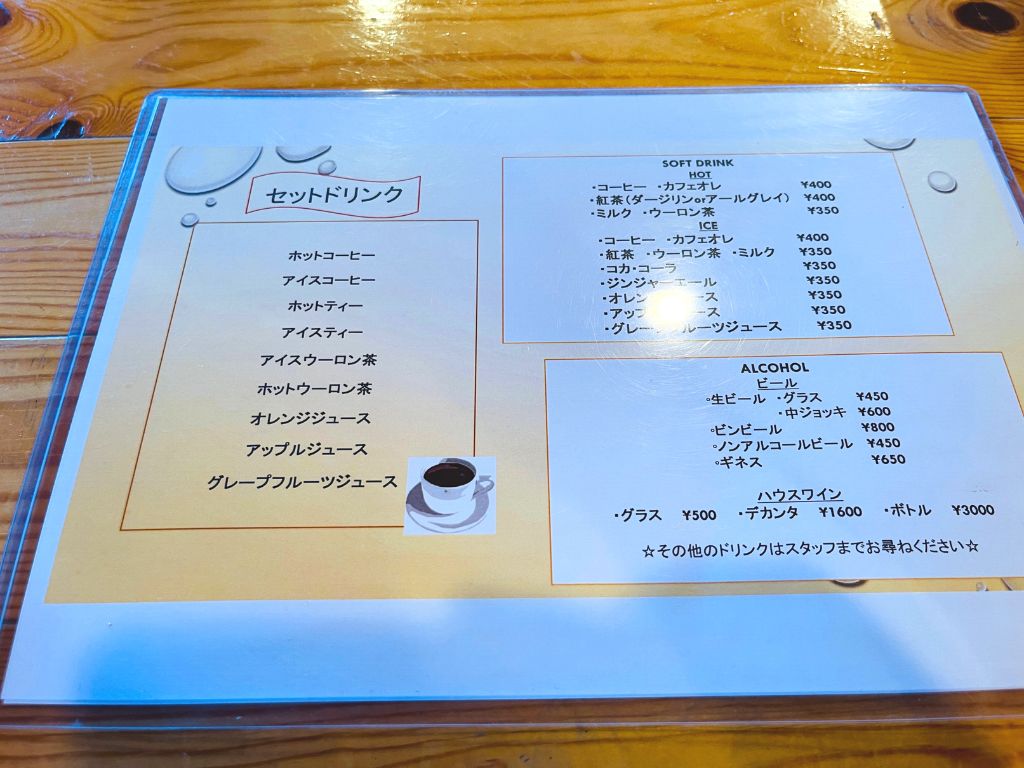 セットドリンク
ホットコーヒー
アイスコーヒー
ホットティー
アイスティー
アイスウーロン茶
ホットウーロン茶
オレンジジュース
アップルジュース
グレープフルーツジュース
SOFT DRINK
HOT
・コーヒー ・カフェオレ ¥400
・紅茶(ダージリンorアールグレイ) ¥400
・ミルク ・ウーロン茶 ¥350
ICE
・コーヒー ・カフェオレ ¥400
・紅茶 ・ウーロン茶 ・ミルク ¥350
・コカ・コーラ ¥350
・ジンジャーエール ¥350
・オレンジジュース ¥350
・アップルジュース ¥350
・グレープフルーツジュース ¥350
ALCOHOL
ビール
○生ビール ・グラス ¥450
・中ジョッキ ¥600
○ビンビール ¥800
○ノンアルコールビール ¥450
○ギネス ¥650
ハウスワイン
・グラス ¥500 ・デカンタ ¥1600 ・ボトル ¥3000
☆その他のドリンクはスタッフまでお尋ねください☆